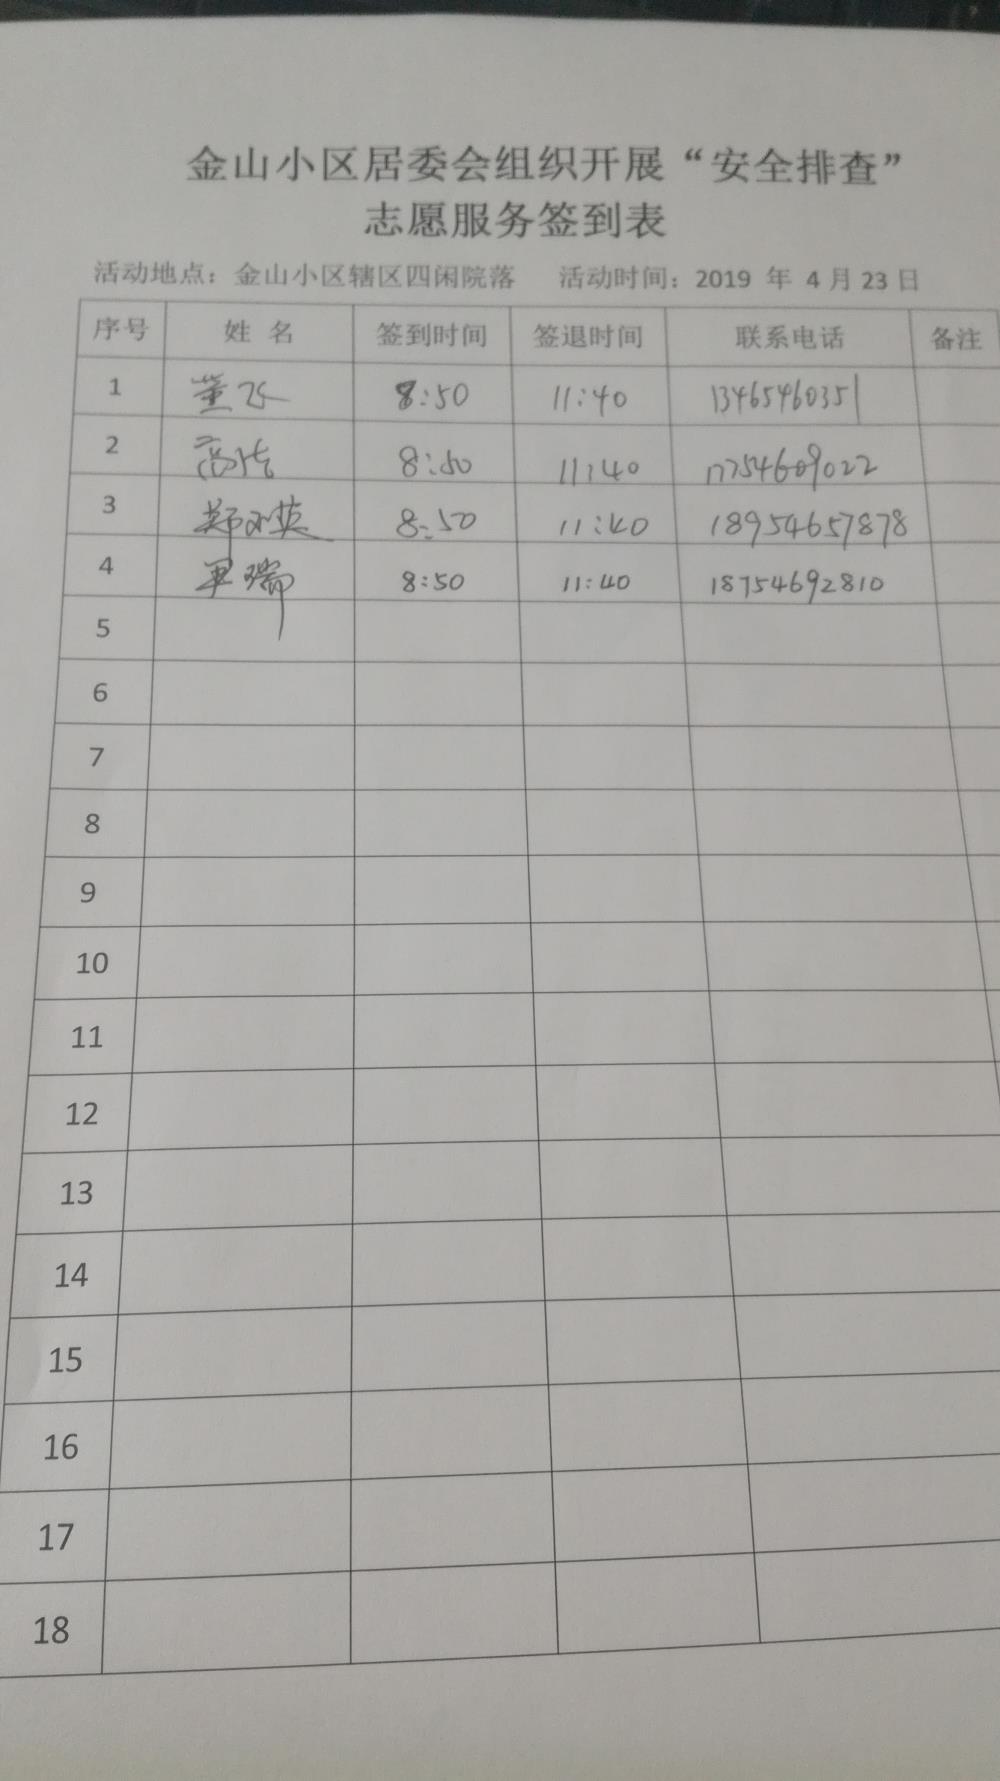 金山小区居委会组织开展“安全排查”
志愿服务签到表
活动地点：金山小区辖区四闲院落 活动时间：2019 年 4 月 23 日
序号 姓 名 签到时间 签退时间 联系电话 备注
1 董飞 8:50 11:40 13465460351
2 高 8:50 11:40 17754609022
3 郑 英 8:50 11:40 18954657878
4 瑞 8:50 11:40 18754692810
5
6
7
8
9
10
11
12
13
14
15
16
17
18